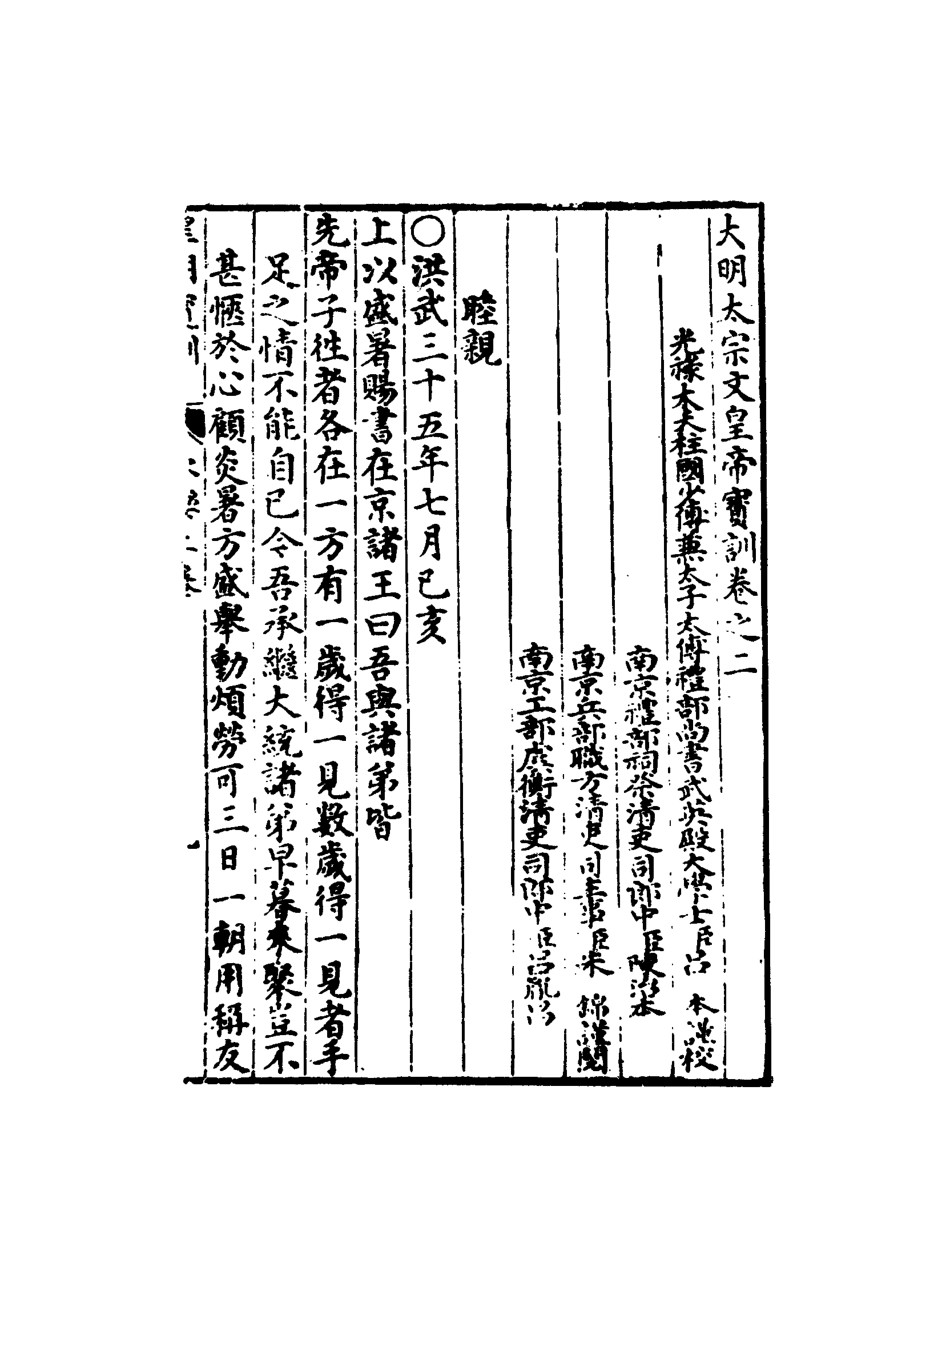 大明太宗文皇帝寳訓卷之二
光祿大夫柱國少傅兼太子太傅禮部尚書武英殿大學士臣呂 本謹校
南京禮部祠祭清吏司郎中臣陳治本
南京兵部職方清吏司主事臣朱 錦謹閱
南京工部虞衡清吏司郎中臣呂胤昌
睦親
○洪武三十五年七月己亥
上以盛暑賜書在京諸王曰吾與諸弟皆
先帝子徃者各在一方有一歲得一見數歲得一見者手
足之情不能自已今吾承繼大統諸弟早暮來聚豈不
甚愜於心顧炎暑方盛舉動煩勞可三日一朝用稱友